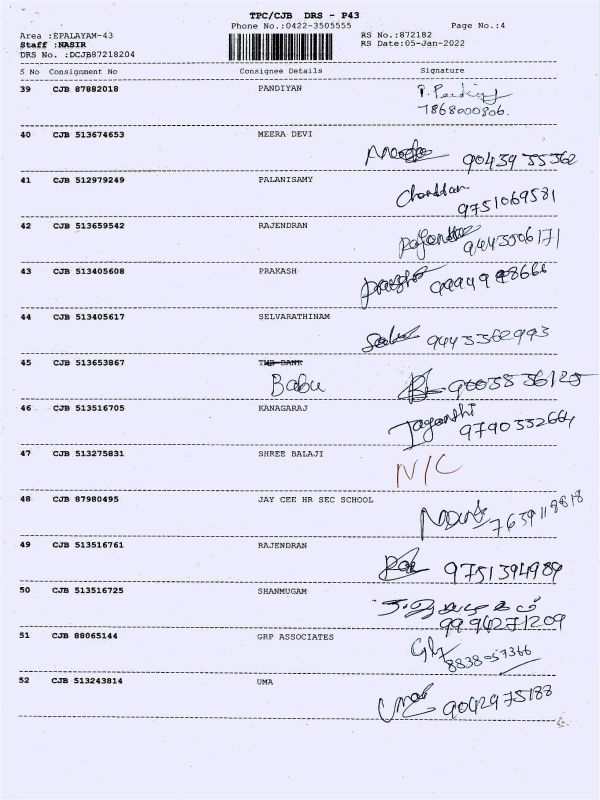 TPC/CJB DRS - P43
Phone No.:0422-3505555 Page No.:4
Area :EPALAYAM-43 RS No.:872182
Staff :NASIR RS Date:05-Jan-2022
DRS No. :DCJB87218204
S No Consignment No Consignee Details Signature
39 CJB 87882018 PANDIYAN
7868000806.
40 CJB 513674653 MEERA DEVI
41 CJB 512979249 PALANISAMY
9751069581
42 CJB 513659542 RAJENDRAN
9443506171
43 CJB 513405608 PRAKASH
44 CJB 513405617 SELVARATHINAM
45 CJB 513653867 TMB BANK
Babu
46 CJB 513516705 KANAGARAJ
Jayanthi
9790332664
47 CJB 513275831 SHREE BALAJI
N/C
48 CJB 87980495 JAY CEE HR SEC SCHOOL
49 CJB 513516761 RAJENDRAN
9751394989
50 CJB 513516725 SHANMUGAM
9994271209
51 CJB 88065144 GRP ASSOCIATES
8838-57366
52 CJB 513243814 UMA
Uma 9042975188